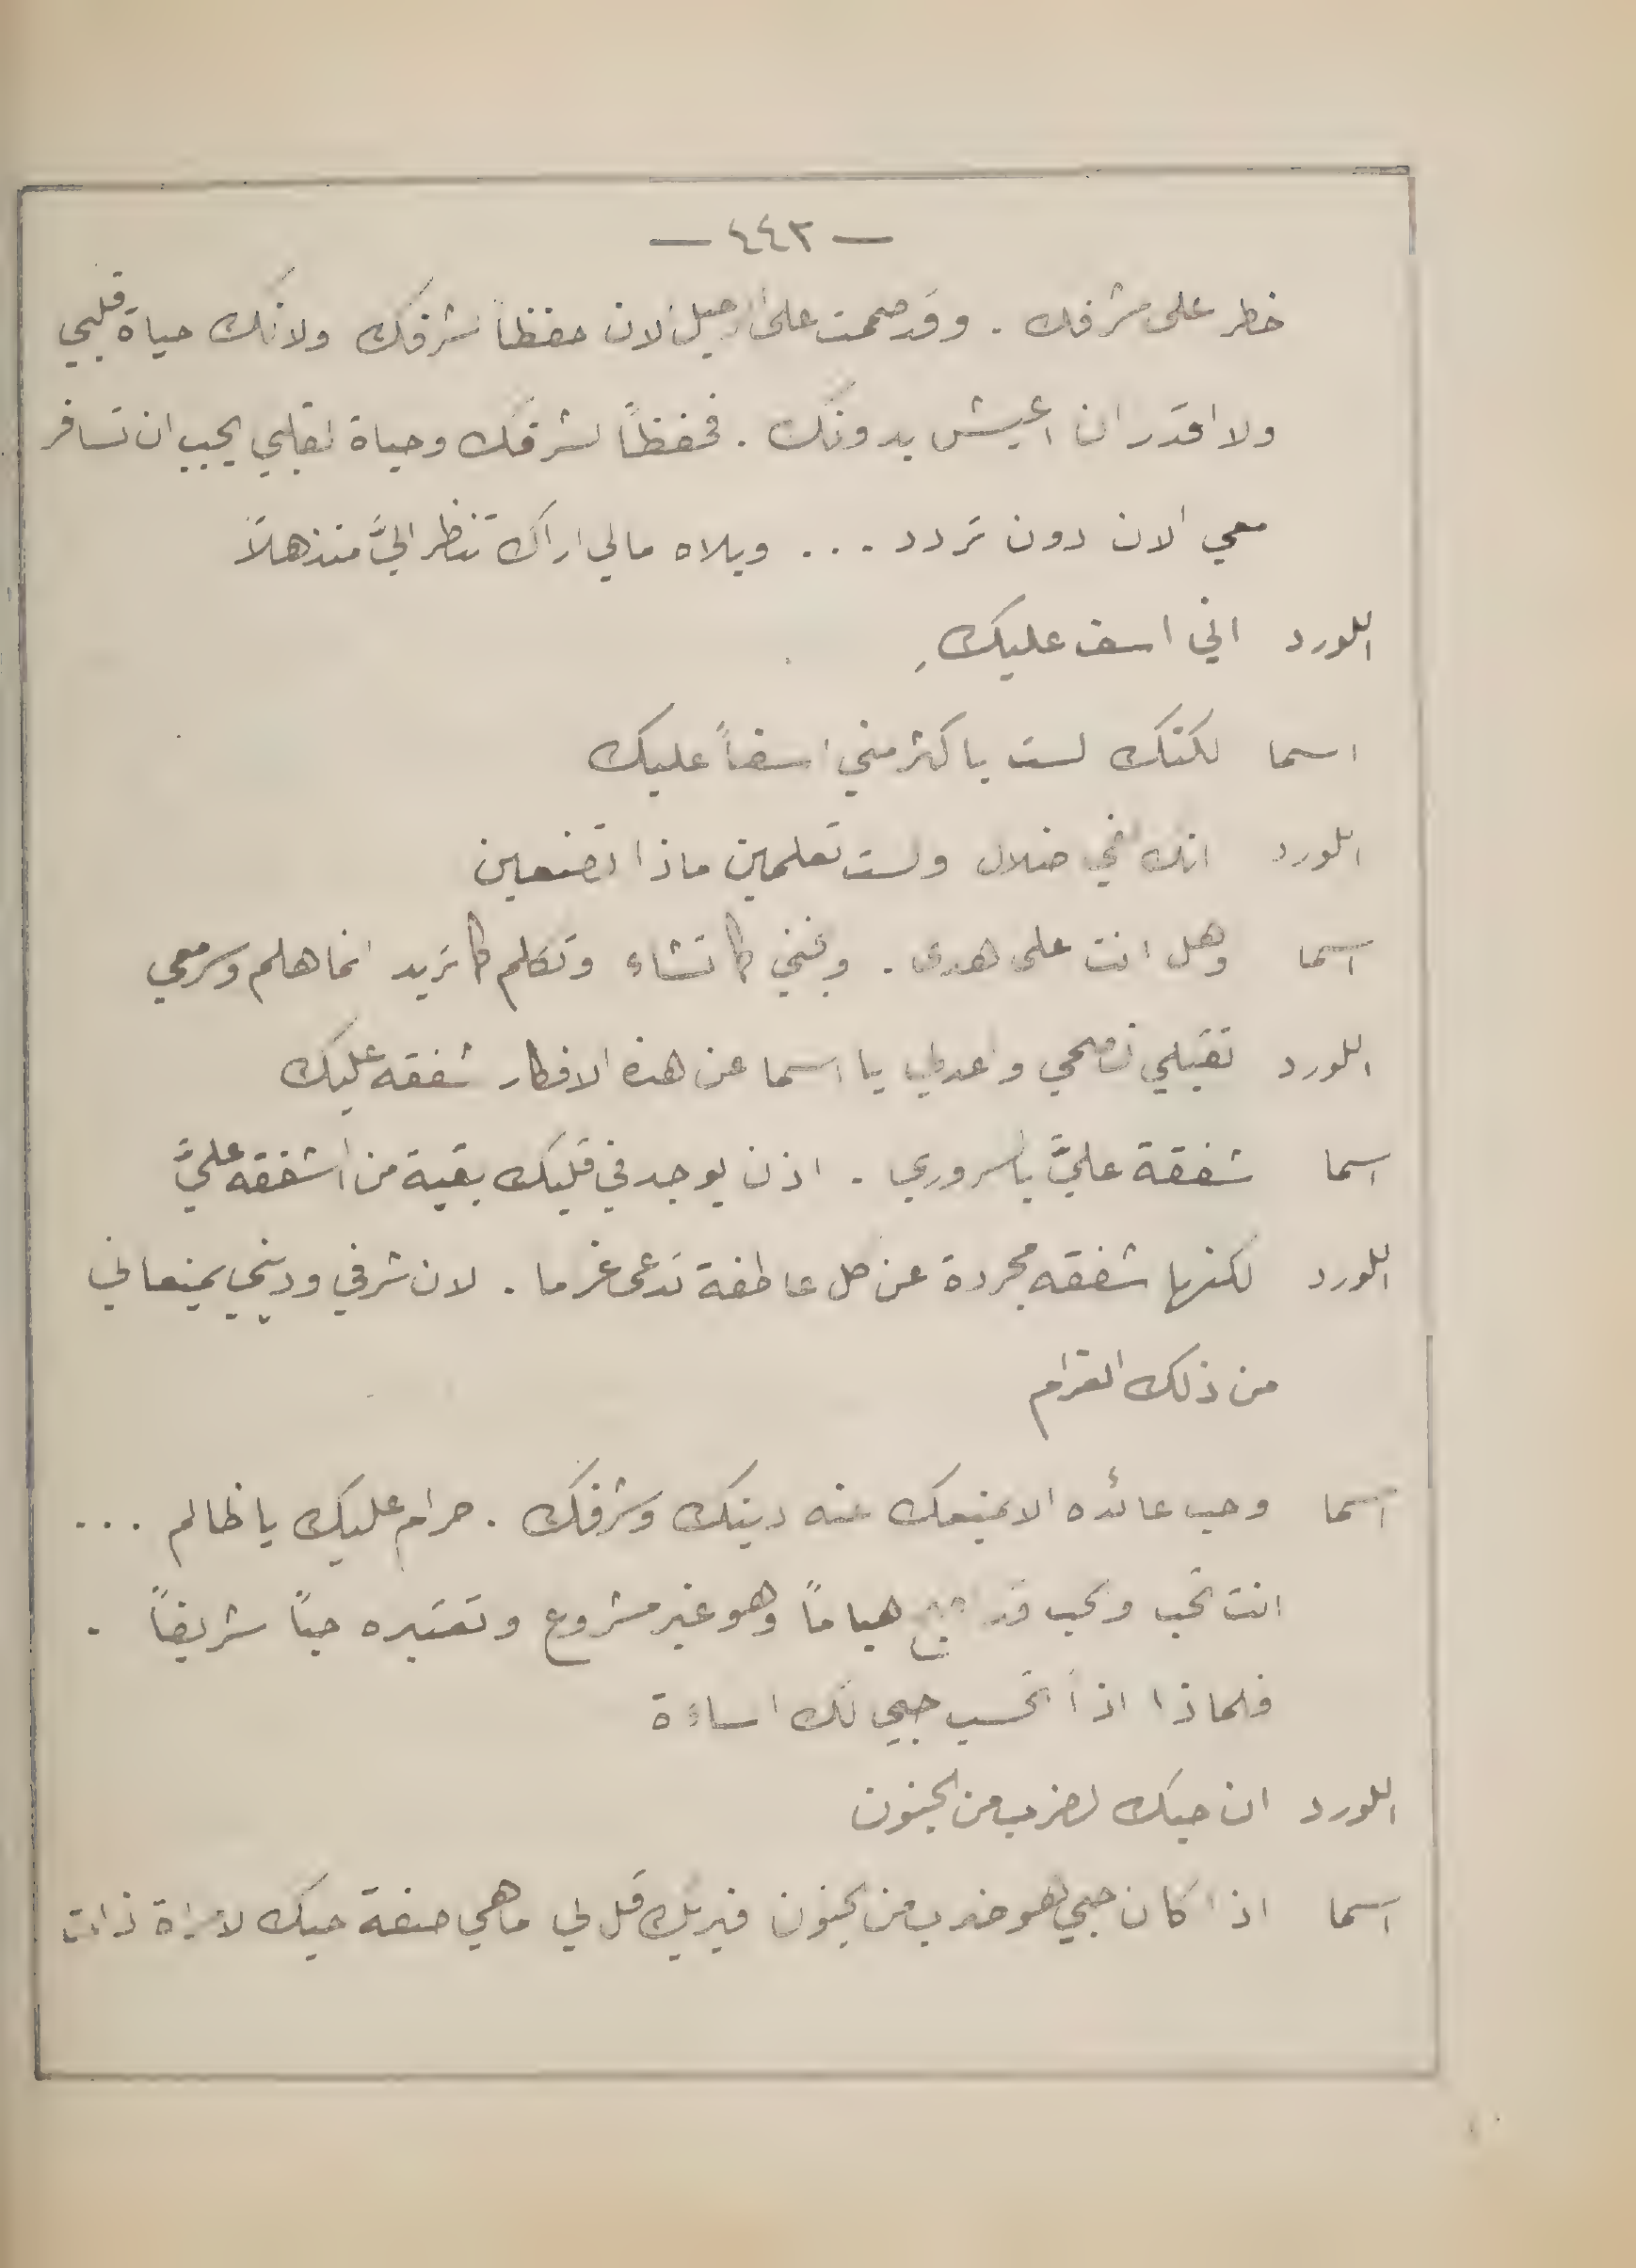 — ٤٤٣ —
خطر على شرفك . وقد صممت على الرحيل الان حفظاً لشرفك ولانك حياة قلبي
ولا اقدر ان اعيش بدونك . فحفظاً لشرفك وحياة لقلبي يجب ان تسافر
معي الان دون تردد ... ويلاه مالي اراك تنظر اليَّ منذهلاً
اللورد اني اسف عليكِ
اسما لكنك لست باكثر مني اسفاً عليك
اللورد انك في ضلال ولست تعلمين ماذا تصنعين
اسما وهل انت على هدى . وبخني كما تشاء وتكلم كما تريد انما هلم وسر معي
اللورد تقبلي نصحي واعدلي يا اسما عن هذه الافكار شفقه عليك
اسما شفقة عليَّ يا لسروري . اذن يوجد في قلبك بقية من الشفقه عليَّ
اللورد لكنها شفقه مجردة عن كل عاطفة تدعى غرما . لان شرفي وديني يمنعاني
من ذلك الغرام
اسما وحب عائده الا يمنعك عنه دينك وشرفك . حرام عليك يا ظالم ...
انت تحب وتحب هياماً وهو غير مشروع وتعتبره حباً شريفاً .
فلماذا اذاً تحسب حبي لك اساءة
اللورد ان حبك لضرب من الجنون
اسما اذا كان حبي لهو ضرب من الجنون فبربك قل لي ما هي صفة حبك لامراة ذات